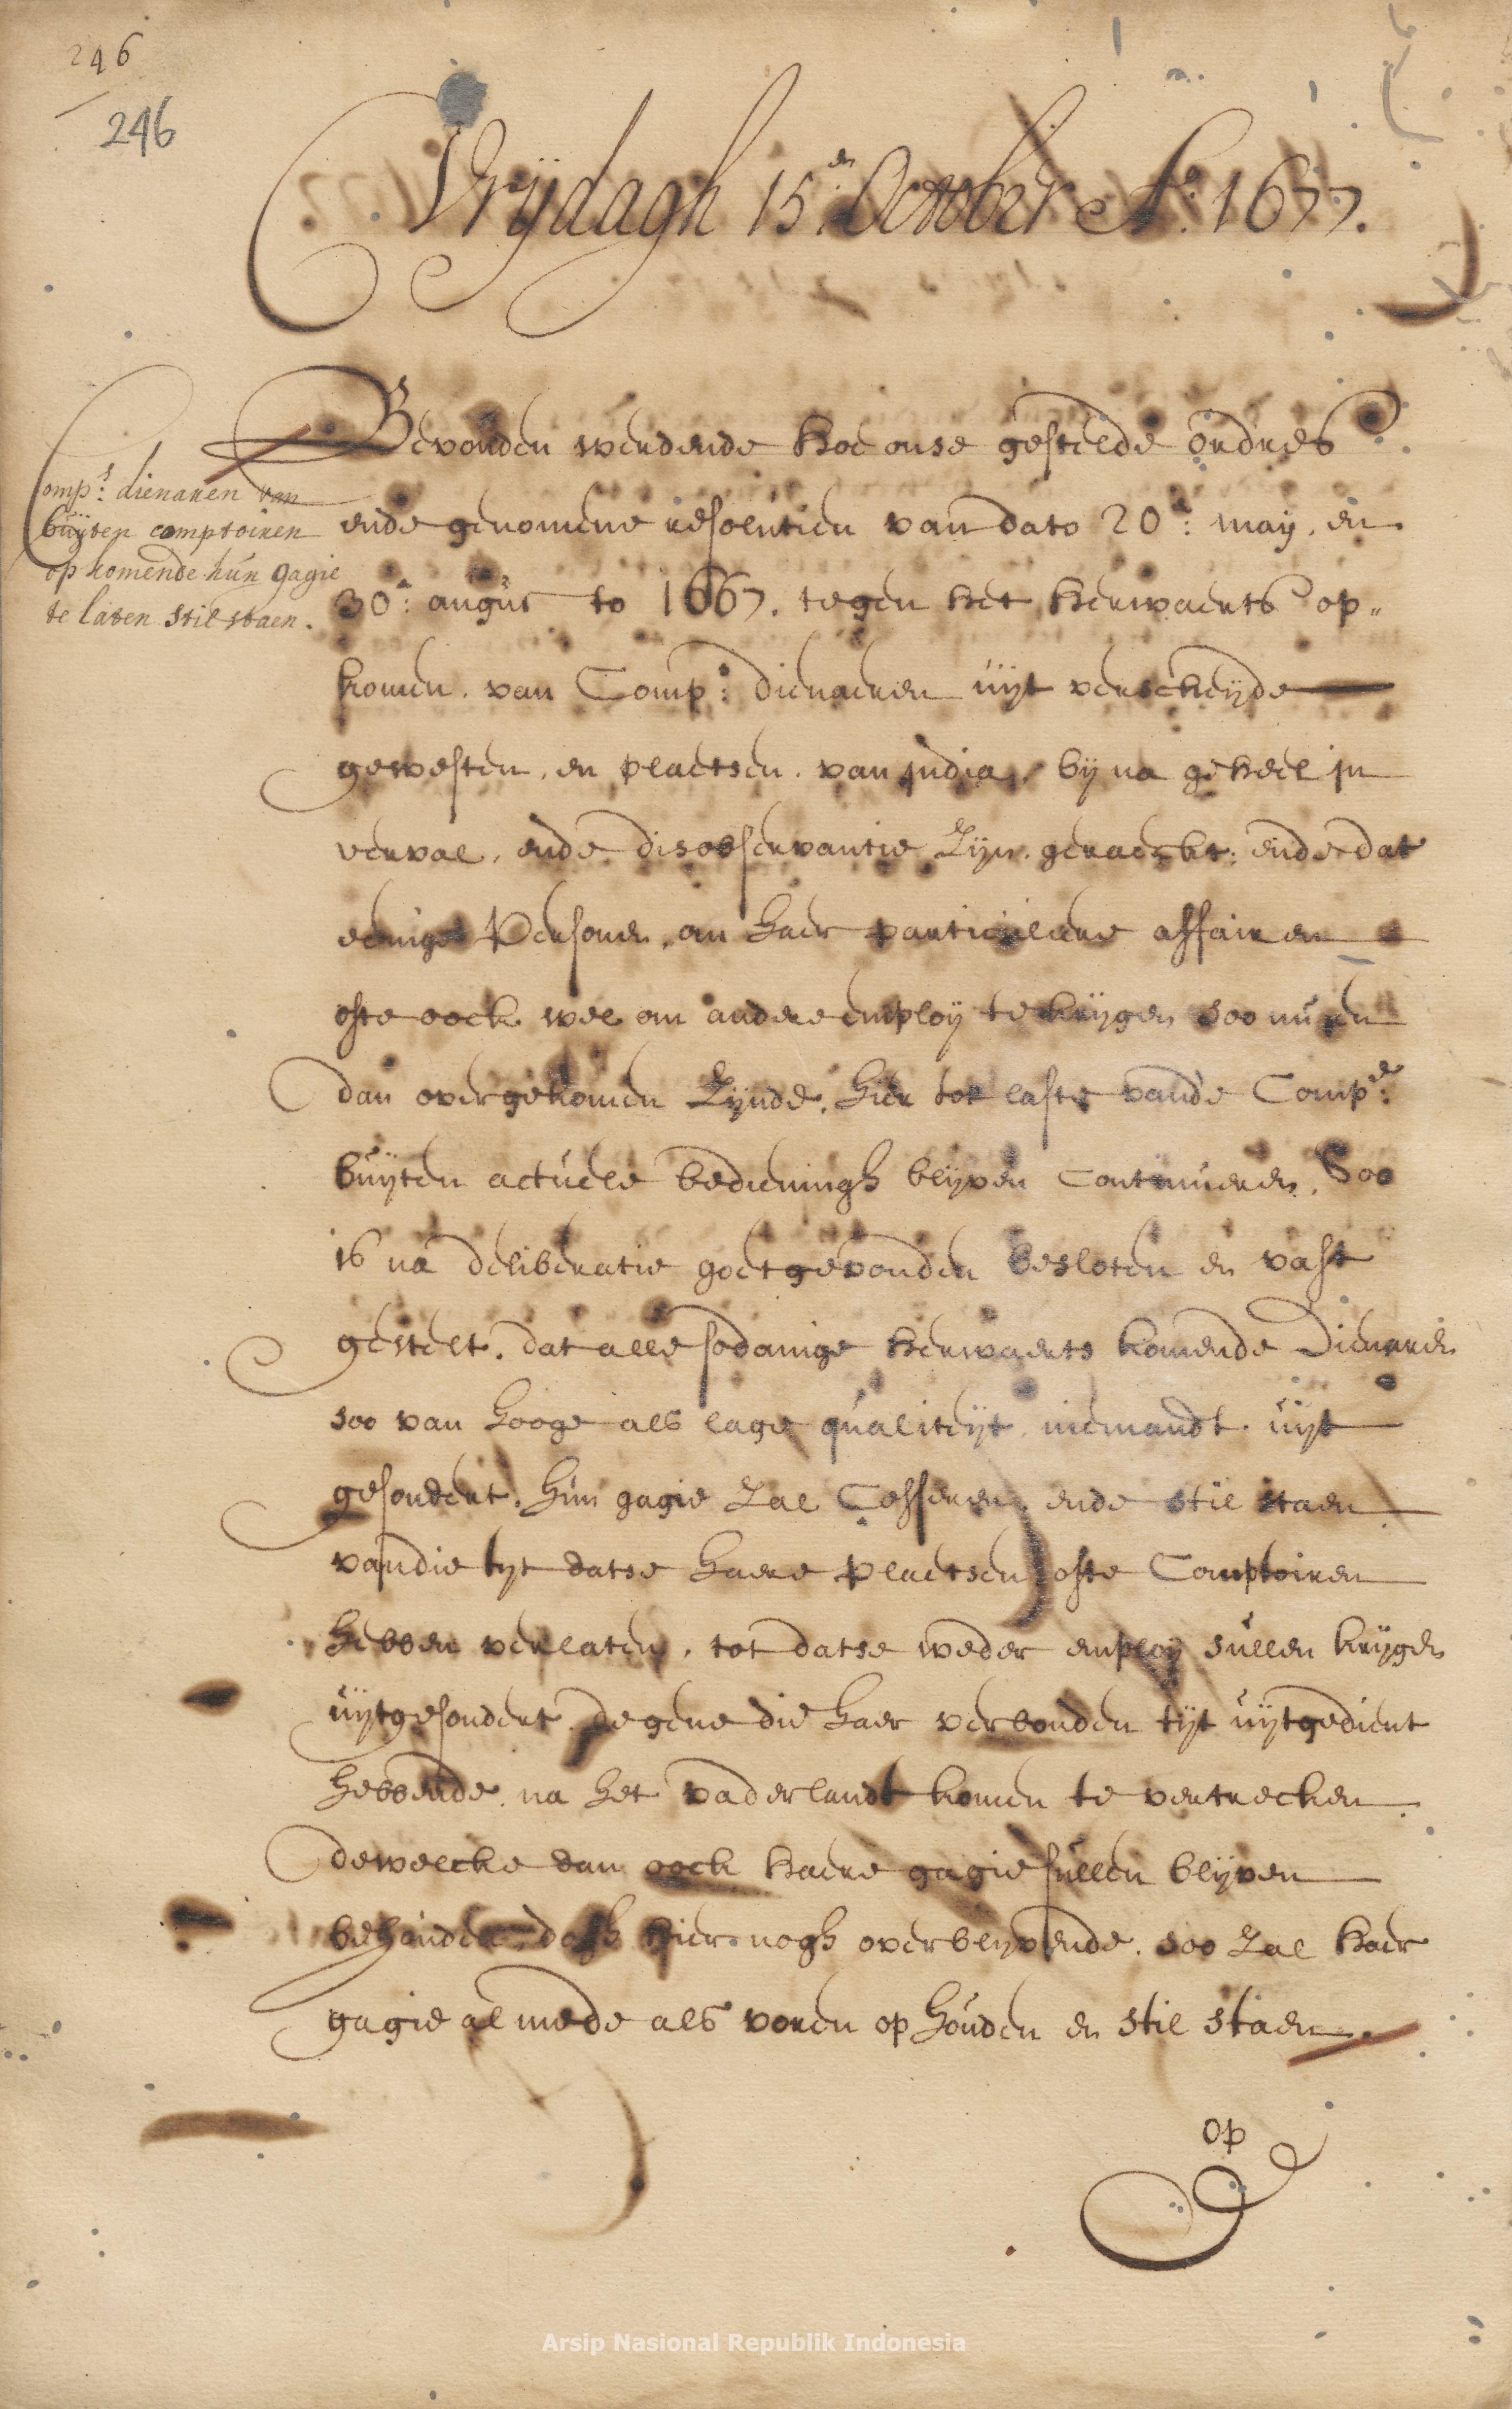 246
246
Vrijdagh 15:en October Ao. 1677.
Comps: dienaren van
buÿten comptoiren
op komende hun gagie
te laten stil staen.
Bevonden werdende hoe onse gestelde ordres
ende genomene resolutien van dato 20:e may, en
30:e augus to 1667. tegen het herwaerts op„
komen. van Comp:s dienaeren uijt verscheijde
gewesten, en plaetsen. van India, bij na geheel in
verval, ende disobservantie zijn. geraeckt: ende dat
eenige Personen, om haer particuliere affairen
ofte oock wel om andere emploij te krijgen soo nu en
dan overgekomen zijnde, hier tot laste vande Comp:e
buijten actuele bedieningh blijven Continueren, Soo
is na deliberatie goetgevonden besloten en vast
gestelt. dat alle sodanige herwaerts komende Dienaren
soo van hooge als lage qualiteijt, niemandt. uijt
gesondert, hun gagie zal Cesseren, ende stil staen
van die tijt datse haere plaetsen ofte Comptoiren
hebben verlaten, tot datse weder emploij sullen krijgen
uijtgesondert, de gene die haer verbonden tijt uijtgedient
hebbende, na het vaderlandt komen te vertrecken
dewelcke dan oock haere gagie sullen blijven
behouden, dogh hier nogh overblijvende, soo zal haer
gagie al mede als voren op houden en stil staen.
op
Arsip Nasional Republik Indonesia